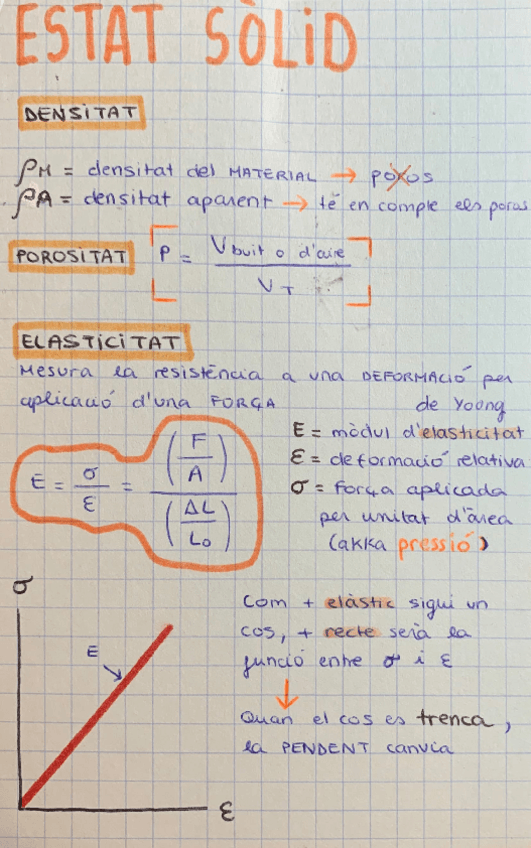 ESTAT SÒLiD
DENSiTAT
ρM = densitat del MATERIAL → poros
ρA = densitat aparent → té en compte els poros
POROSiTAT P = Vbuit o d'aire / VT
ELASTiCiTAT
Mesura la resistència a una DEFORMACIÓ per
aplicació d'una FORÇA
de Yoong
E = mòdul d'elasticitat
E = σ/ε = (F/A) / (ΔL/L₀)
ε = deformació relativa
σ = força aplicada
per unitat d'àrea
(akka pressió)
σ
E
ε
Com + elàstic sigui un
cos, + recte serà la
funció entre σ i ε
↓
Quan el cos es trenca,
la PENDENT canvia